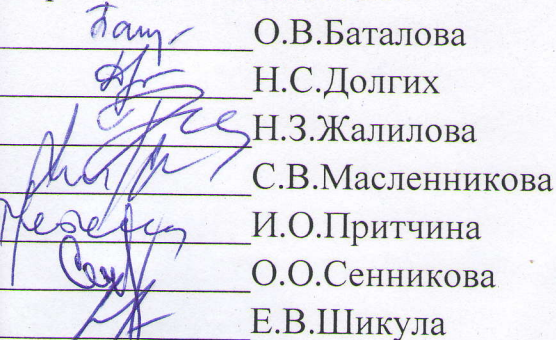 О.В.Баталова
Н.С.Долгих
Н.З.Жалилова
С.В.Масленникова
И.О.Притчина
О.О.Сенникова
Е.В.Шикула